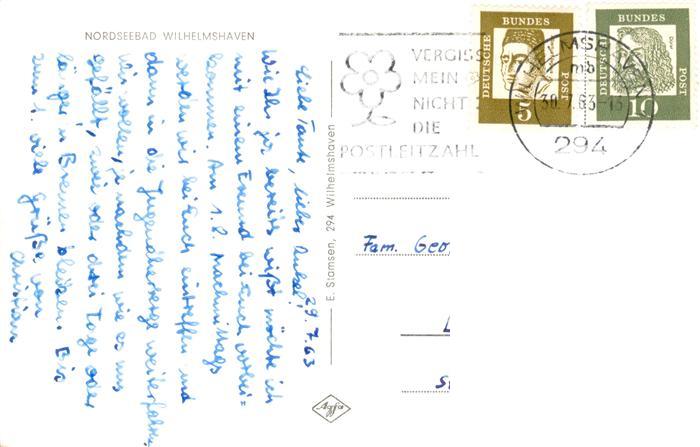 NORDSEEBAD WILHELMSHAVEN
29.7.63
Liebe Tante, lieber Onkel!
Wie Ihr ja bereits wißt möchte ich
mit einem Freund bei Euch vorbei=
kommen. Am 1.8. nachmittags
werden wir bei Euch eintreffen und
dann in die Jugendherberge weiterfahren.
Wir wollen, je nachdem wie es uns
gefällt, zwei oder drei Tage oder
länger in Bremen bleiben. Bis
zum 1. viele Grüße von
Christian
E. Siamsen, 294 Wilhelmshaven
Agfa
VERGISS
MEIN
NICHT
DIE
POSTLEITZAHL
DEUTSCHE
BUNDES
POST
5
DEUTSCHE
BUNDES
POST
10
Dürer
WILHELMSHAVEN
mb
30.7.63-13
294
Fam. Geo